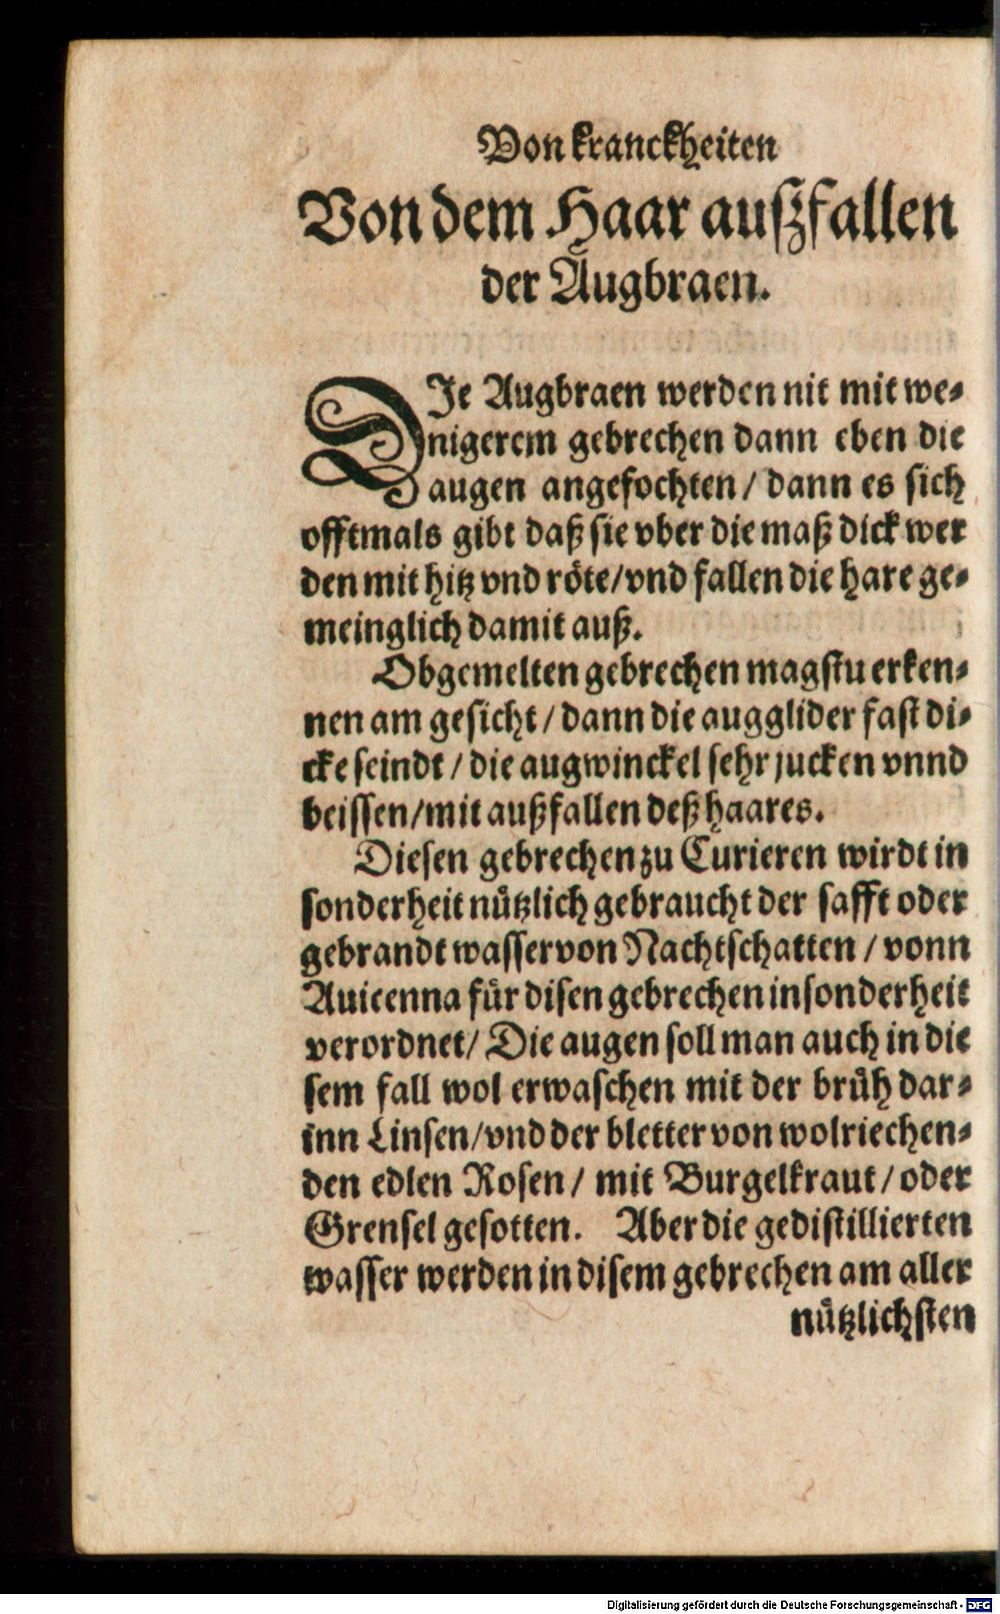 Von kranckheiten
Von dem Haar außfallen
der Augbraen.
DIe Augbraen werden nit mit we⸗
nigerem gebrechen dann eben die
augen angefochten / dann es sich
offtmals gibt daß sie vber die maß dick wer
den mit hitz vnd röte/vnd fallen die hare ge⸗
meinglich damit auß.
Obgemelten gebrechen magstu erken⸗
nen am gesicht / dann die augglider fast di⸗
cke seindt / die augwinckel sehr jucken vnnd
beissen/mit außfallen deß haares.
Diesen gebrechen zu Curieren wirdt in
sonderheit nützlich gebraucht der safft oder
gebrandt wasser von Nachtschatten / vonn
Auicenna für disen gebrechen insonderheit
verordnet/ Die augen soll man auch in die
sem fall wol erwaschen mit der brüh dar⸗
inn Linsen/vnd der bletter von wolriechen⸗
den edlen Rosen/ mit Burgelkraut / oder
Grensel gesotten. Aber die gedistillierten
wasser werden in disem gebrechen am aller
nützlichsten
Digitalisierung gefördert durch die Deutsche Forschungsgemeinschaft - DFG